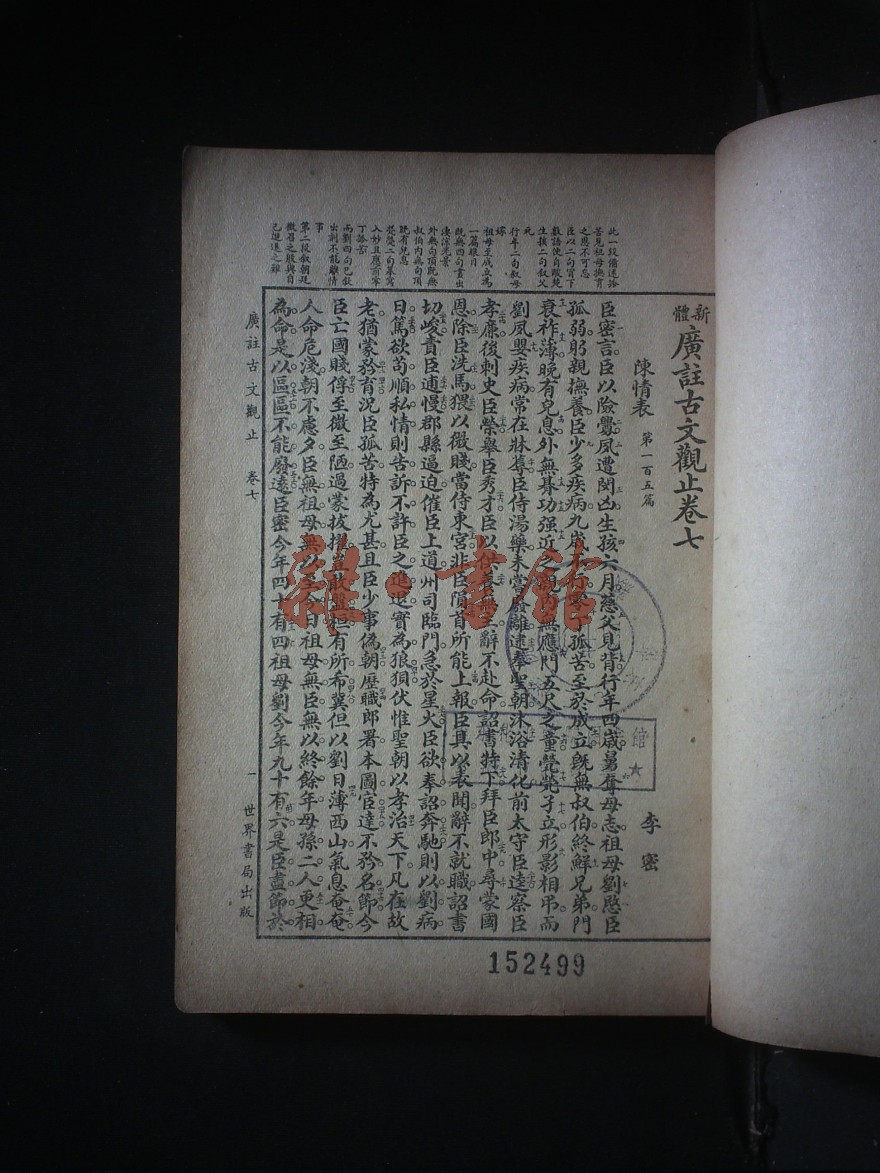 新體廣註古文觀止卷七
陳情表 第一百五篇 李密
臣密言臣以險釁夙遭閔凶生孩六月慈父見背行年四歲舅奪母志祖母劉愍臣
孤弱躬親撫養臣少多疾病九歲不行零丁孤苦至於成立既無叔伯終鮮兄弟門
衰祚薄晚有兒息外無朞功强近之親內無應門五尺之童煢煢孑立形影相弔而
劉夙嬰疾病常在牀蓐臣侍湯藥未嘗廢離逮奉聖朝沐浴清化前太守臣逵察臣
孝廉後刺史臣榮舉臣秀才臣以供養無主辭不赴命詔書特下拜臣郎中尋蒙國
恩除臣洗馬猥以微賤當侍東宮非臣隕首所能上報臣具以表聞辭不就職詔書
切峻責臣逋慢郡縣逼迫催臣上道州司臨門急於星火臣欲奉詔奔馳則以劉病
日篤欲苟順私情則告訴不許臣之進退實為狼狽伏惟聖朝以孝治天下凡在故
老猶蒙矜育況臣孤苦特為尤甚且臣少事偽朝歷職郎署本圖宦達不矜名節今
臣亡國賤俘至微至陋過蒙拔擢豈敢盤桓有所希冀但以劉日薄西山氣息奄奄
人命危淺朝不慮夕臣無祖母無以至今日祖母無臣無以終餘年母孫二人更相
為命是以區區不能廢遠臣密今年四十有四祖母劉今年九十有六是臣盡節於
此一段備述孤
苦見祖母撫育
之恩不可忘
臣以二句冒下
數語使自酸楚
生孩二句敘父
死
行年二句敘母
嫁
祖母至成立為
一篇眼目
既無四句畫出
凄涼光景
外無句頂既無
叔伯內無句頂
晚有兒息
煢煢二句摹寫
入妙且應前零
丁孤苦
而劉四句已敘
出劉不能離情
事
第二段敘朝廷
徵召之殷與自
己進退之難
廣註古文觀止 卷七
一 世界書局出版
雜·書館
館★
152499